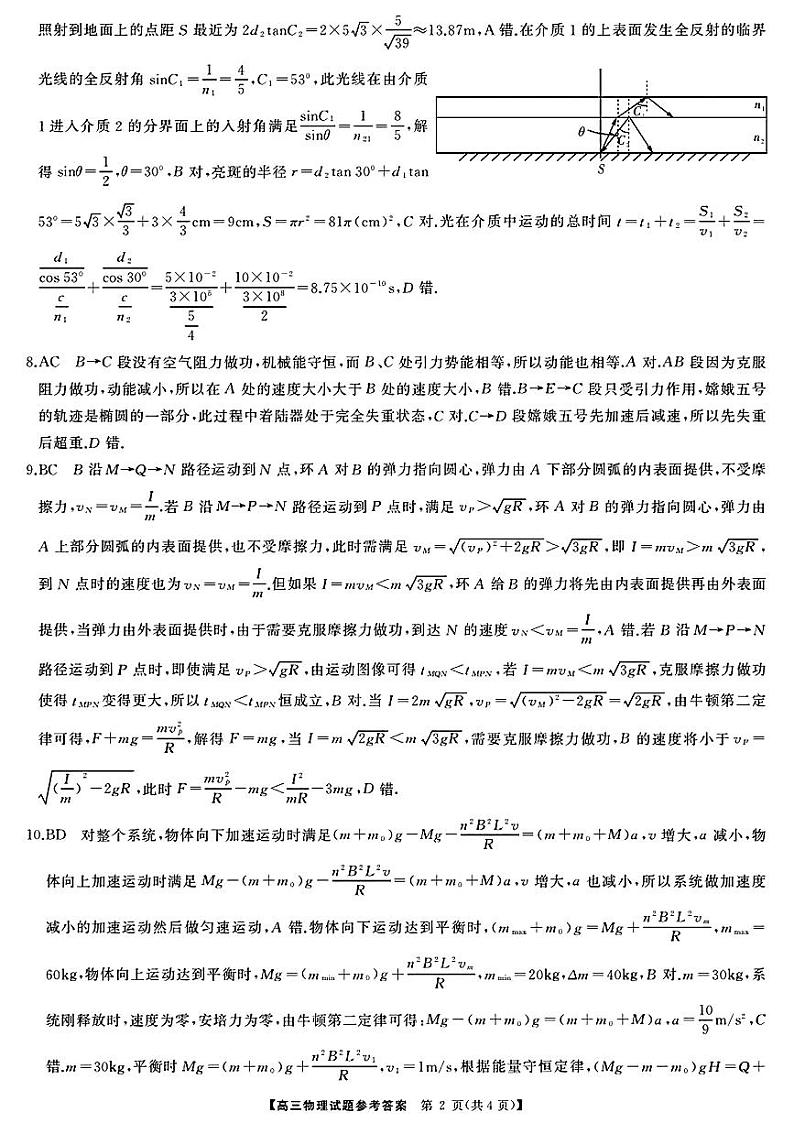 照射到地面上的点距 S 最近为 2d₂tanC₂=2×5√3×5/√39≈13.87m,A 错.在介质 1 的上表面发生全反射的临界
光线的全反射角 sinC₁=1/n₁=4/5,C₁=53°,此光线在由介质
1 进入介质 2 的分界面上的入射角满足 sinC₁/sinθ=1/n₂₁=8/5,解
得 sinθ=1/2,θ=30°,B 对,亮斑的半径 r=d₂tan 30°+d₁tan
n₁
C₁
θ
C₂
n₂
S
53°=5√3×√3/3+3×4/3cm=9cm,S=πr²=81π(cm)²,C 对.光在介质中运动的总时间 t=t₁+t₂=S₁/v₁+S₂/v₂=
(d₁/cos 53°)/(c/n₁)+(d₂/cos 30°)/(c/n₂)=(5×10⁻²)/(3×10⁸/(5/4))+(10×10⁻²)/(3×10⁸/2)=8.75×10⁻¹⁰s,D 错.
8.AC B→C 段没有空气阻力做功,机械能守恒,而 B、C 处引力势能相等,所以动能也相等.A 对.AB 段因为克服
阻力做功,动能减小,所以在 A 处的速度大小大于 B 处的速度大小,B 错.B→E→C 段只受引力作用,嫦娥五号
的轨迹是椭圆的一部分,此过程中着陆器处于完全失重状态,C 对.C→D 段嫦娥五号先加速后减速,所以先失重
后超重.D 错.
9.BC B 沿 M→Q→N 路径运动到 N 点,环 A 对 B 的弹力指向圆心,弹力由 A 下部分圆弧的内表面提供,不受摩
擦力,v_N=v_M=I/m.若 B 沿 M→P→N 路径运动到 P 点时,满足 v_P>√gR,环 A 对 B 的弹力指向圆心,弹力由
A 上部分圆弧的内表面提供,也不受摩擦力,此时需满足 v_M=√((v_P)²+2gR)>√3gR,即 I=mv_M>m√3gR,
到 N 点时的速度也为 v_N=v_M=I/m.但如果 I=mv_M<m√3gR,环 A 给 B 的弹力将先由内表面提供再由外表面
提供,当弹力由外表面提供时,由于需要克服摩擦力做功,到达 N 的速度 v_N<v_M=I/m,A 错.若 B 沿 M→P→N
路径运动到 P 点时,即使满足 v_P>√gR,由运动图像可得 t_MQN<t_MPN,若 I=mv_M<m√3gR,克服摩擦力做功
使得 t_MPN 变得更大,所以 t_MQN<t_MPN 恒成立,B 对.当 I=2m√gR,v_P=√((v_M)²−2gR)=√2gR,由牛顿第二定
律可得,F+mg=mv_P²/R,解得 F=mg,当 I=m√2gR<m√3gR,需要克服摩擦力做功,B 的速度将小于 v_P=
√((I/m)²−2gR),此时 F=mv_P²/R−mg<I²/mR−3mg,D 错.
10.BD 对整个系统,物体向下加速运动时满足(m+m₀)g−Mg−n²B²L²v/R=(m+m₀+M)a,v 增大,a 减小,物
体向上加速运动时满足 Mg−(m+m₀)g−n²B²L²v/R=(m+m₀+M)a,v 增大,a 也减小,所以系统做加速度
减小的加速运动然后做匀速运动,A 错.物体向下运动达到平衡时,(m_max+m₀)g=Mg+n²B²L²v_m/R,m_max=
60kg,物体向上运动达到平衡时,Mg=(m_min+m₀)g+n²B²L²v_m/R,m_min=20kg,Δm=40kg,B 对.m=30kg,系
统刚释放时,速度为零,安培力为零,由牛顿第二定律可得:Mg−(m+m₀)g=(m+m₀+M)a,a=10/9m/s²,C
错.m=30kg,平衡时 Mg=(m+m₀)g+n²B²L²v₁/R,v₁=1m/s,根据能量守恒定律,(Mg−m−m₀)gH=Q+
【高三物理试题参考答案 第 2 页(共 4 页)】